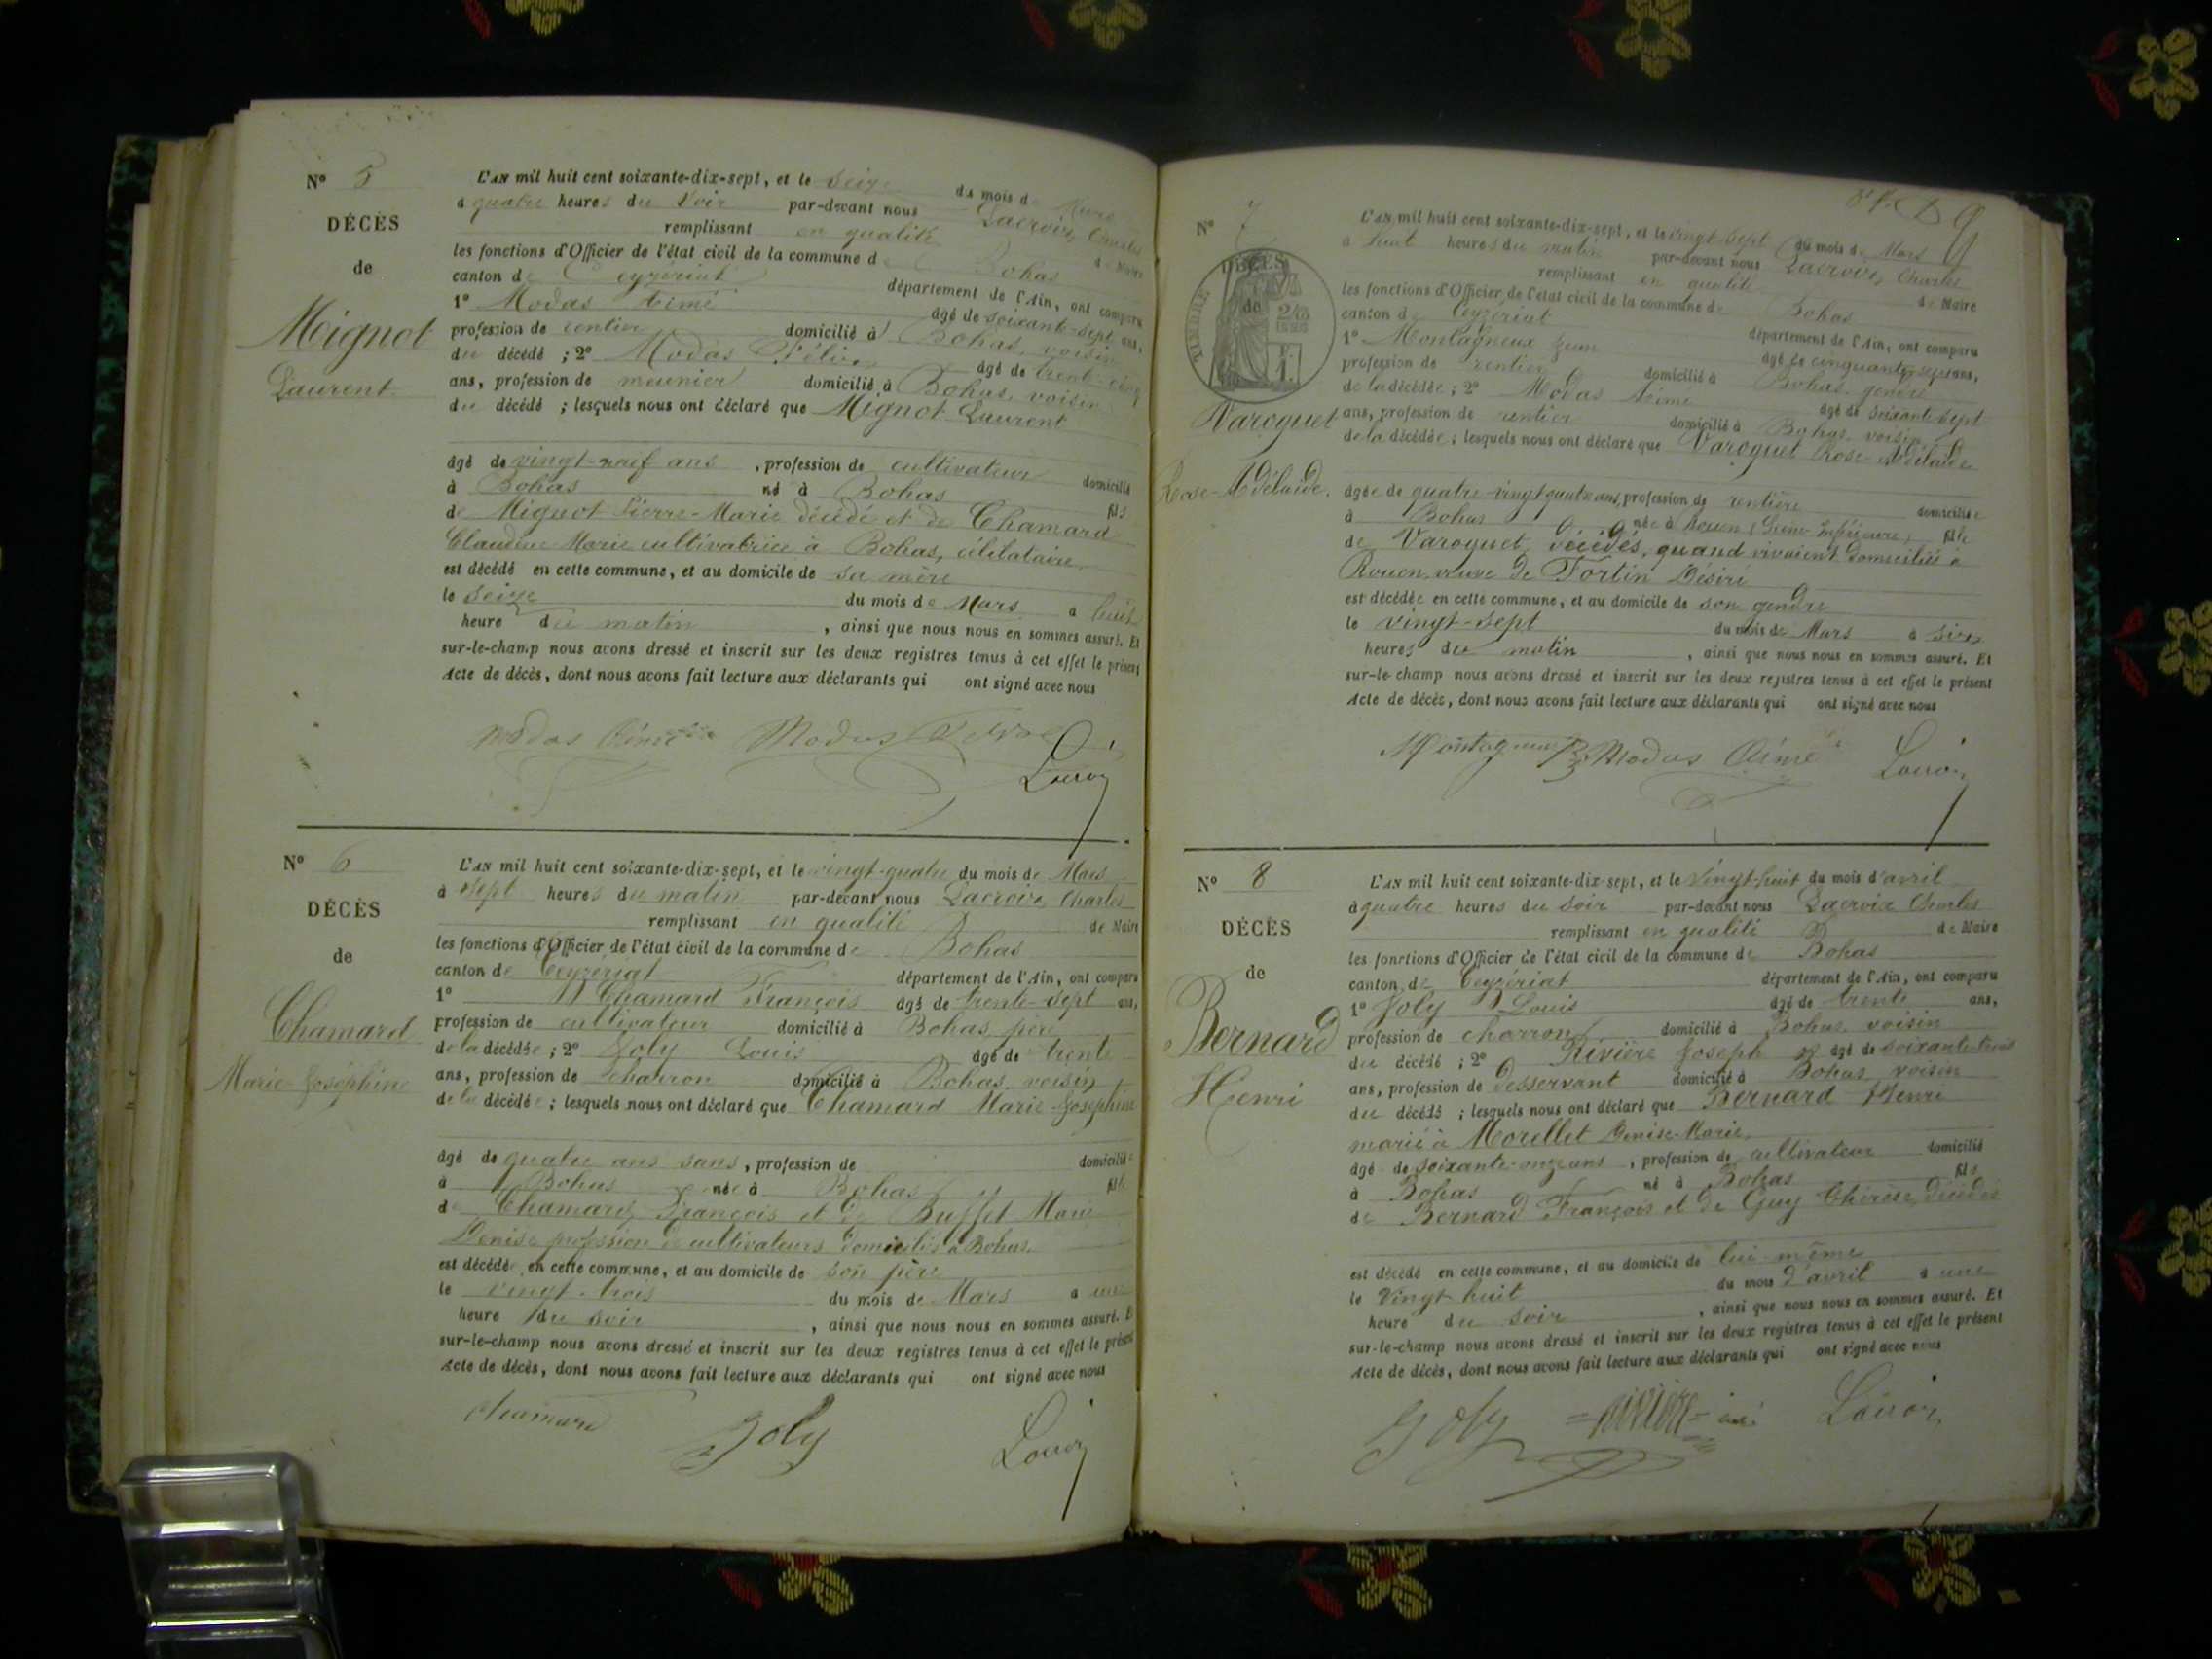 N° 5
DÉCÈS
de
Mignot
Laurent
L'AN mil huit cent soixante-dix-sept, et le seize du mois de Mars
à quatre heures du soir par-devant nous Lacroix, Charles
remplissant en qualité de Maire
les fonctions d'Officier de l'état civil de la commune de Bohas
canton de Ceyzériat département de l'Ain, ont comparu
1° Modas Aimé âgé de soixante-sept ans,
profession de rentier domicilié à Bohas, voisin
du décédé ; 2° Modas Félix âgé de trente-cinq
ans, profession de meunier domicilié à Bohas, voisin
du décédé ; lesquels nous ont déclaré que Mignot Laurent
âgé de vingt-neuf ans , profession de cultivateur domicilié
à Bohas né à Bohas fils
de Mignot Pierre-Marie décédé et de Chamard
Claudine Marie cultivatrice à Bohas, célibataire
est décédé en cette commune, et au domicile de sa mère
le seize du mois de Mars à huit
heure du matin , ainsi que nous nous en sommes assuré. Et
sur-le-champ nous avons dressé et inscrit sur les deux registres tenus à cet effet le présent
Acte de décès, dont nous avons fait lecture aux déclarants qui ont signé avec nous
Modas Aimé Modas Lacroix
N° 6
DÉCÈS
de
Chamard
Marie-Joséphine
L'AN mil huit cent soixante-dix-sept, et le vingt-quatre du mois de Mars
à sept heures du matin par-devant nous Lacroix, Charles
remplissant en qualité de Maire
les fonctions d'Officier de l'état civil de la commune de Bohas
canton de Ceyzériat département de l'Ain, ont comparu
1° Chamard François âgé de trente-sept ans,
profession de cultivateur domicilié à Bohas, père
de la décédée ; 2° Joly Louis âgé de trente
ans, profession de charron domicilié à Bohas, voisin
de la décédée ; lesquels nous ont déclaré que Chamard Marie-Joséphine
âgé de quatre ans sans , profession de domiciliée
à Bohas née à Bohas fille
de Chamard François et de Buffet Marie
Denise profession de cultivateurs domiciliés à Bohas
est décédée en cette commune, et au domicile de son père
le vingt-trois du mois de Mars à une
heure du soir , ainsi que nous nous en sommes assuré. Et
sur-le-champ nous avons dressé et inscrit sur les deux registres tenus à cet effet le présent
Acte de décès, dont nous avons fait lecture aux déclarants qui ont signé avec nous
Chamard Joly Lacroix
N° 7
DÉCÈS
de
TIMBRE
Varoquet
Rose-Adélaïde.
L'AN mil huit cent soixante-dix-sept, et le vingt-sept du mois de Mars
à huit heures du matin par-devant nous Lacroix, Charles
remplissant en qualité de Maire
les fonctions d'Officier de l'état civil de la commune de Bohas
canton de Ceyzériat département de l'Ain, ont comparu
1° Montagneux âgé de cinquante ans,
profession de rentier domicilié à Bohas, gendre
de la décédée ; 2° Modas Aimé âgé de soixante-sept
ans, profession de rentier domicilié à Bohas, voisin
de la décédée ; lesquels nous ont déclaré que Varoquet Rose-Adélaïde
âgée de quatre-vingt-quatre ans, profession de rentière domiciliée
à Bohas née à Rouen (Seine-Inférieure) fille
de Varoquet décédés, quand vivaient domiciliés à
Rouen, veuve de Fortin Désiré
est décédée en cette commune, et au domicile de son gendre
le vingt-sept du mois de Mars à six
heures du matin , ainsi que nous nous en sommes assuré. Et
sur-le-champ nous avons dressé et inscrit sur les deux registres tenus à cet effet le présent
Acte de décès, dont nous avons fait lecture aux déclarants qui ont signé avec nous
Montagneux Modas Aimé Lacroix
N° 8
DÉCÈS
de
Bernard
Henri
L'AN mil huit cent soixante-dix-sept, et le vingt-huit du mois d'avril
à quatre heures du soir par-devant nous Lacroix Charles
remplissant en qualité de Maire
les fonctions d'Officier de l'état civil de la commune de Bohas
canton de Ceyzériat département de l'Ain, ont comparu
1° Joly Louis âgé de trente ans,
profession de charron domicilié à Bohas voisin
du décédé ; 2° Rivière Joseph âgé de soixante-trois
ans, profession de desservant domicilié à Bohas, voisin
du décédé ; lesquels nous ont déclaré que Bernard Henri
marié à Morellet Denise-Marie,
âgé de soixante-onze ans , profession de cultivateur domicilié
à Bohas né à Bohas fils
de Bernard François et de Guy Thérèse, décédés
est décédé en cette commune, et au domicile de lui-même
le vingt-huit du mois d'avril à une
heure du soir , ainsi que nous nous en sommes assuré. Et
sur-le-champ nous avons dressé et inscrit sur les deux registres tenus à cet effet le présent
Acte de décès, dont nous avons fait lecture aux déclarants qui ont signé avec nous
Joly Rivière Lacroix